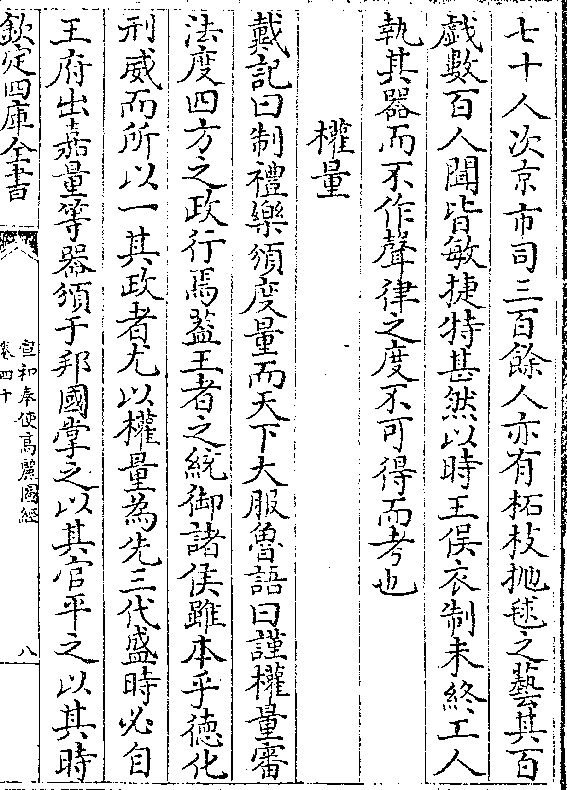 七十人次京市司三百餘人亦有柘枝抛毬之藝其百
戲數百人聞皆敏捷特甚然以時王俣衣制未終工人
執其器而不作聲律之度不可得而考也
權量
戴記曰制禮樂頒度量而天下大服魯語曰謹權量審
法度四方之政行焉葢王者之統御諸侯雖本乎德化
刑威而所以一其政者尤以權量為先三代盛時必自
王府出嘉量等器頒于邦國掌之以其官平之以其時
欽定四庫全書
宣和奉使高麗圖經
卷四十
八